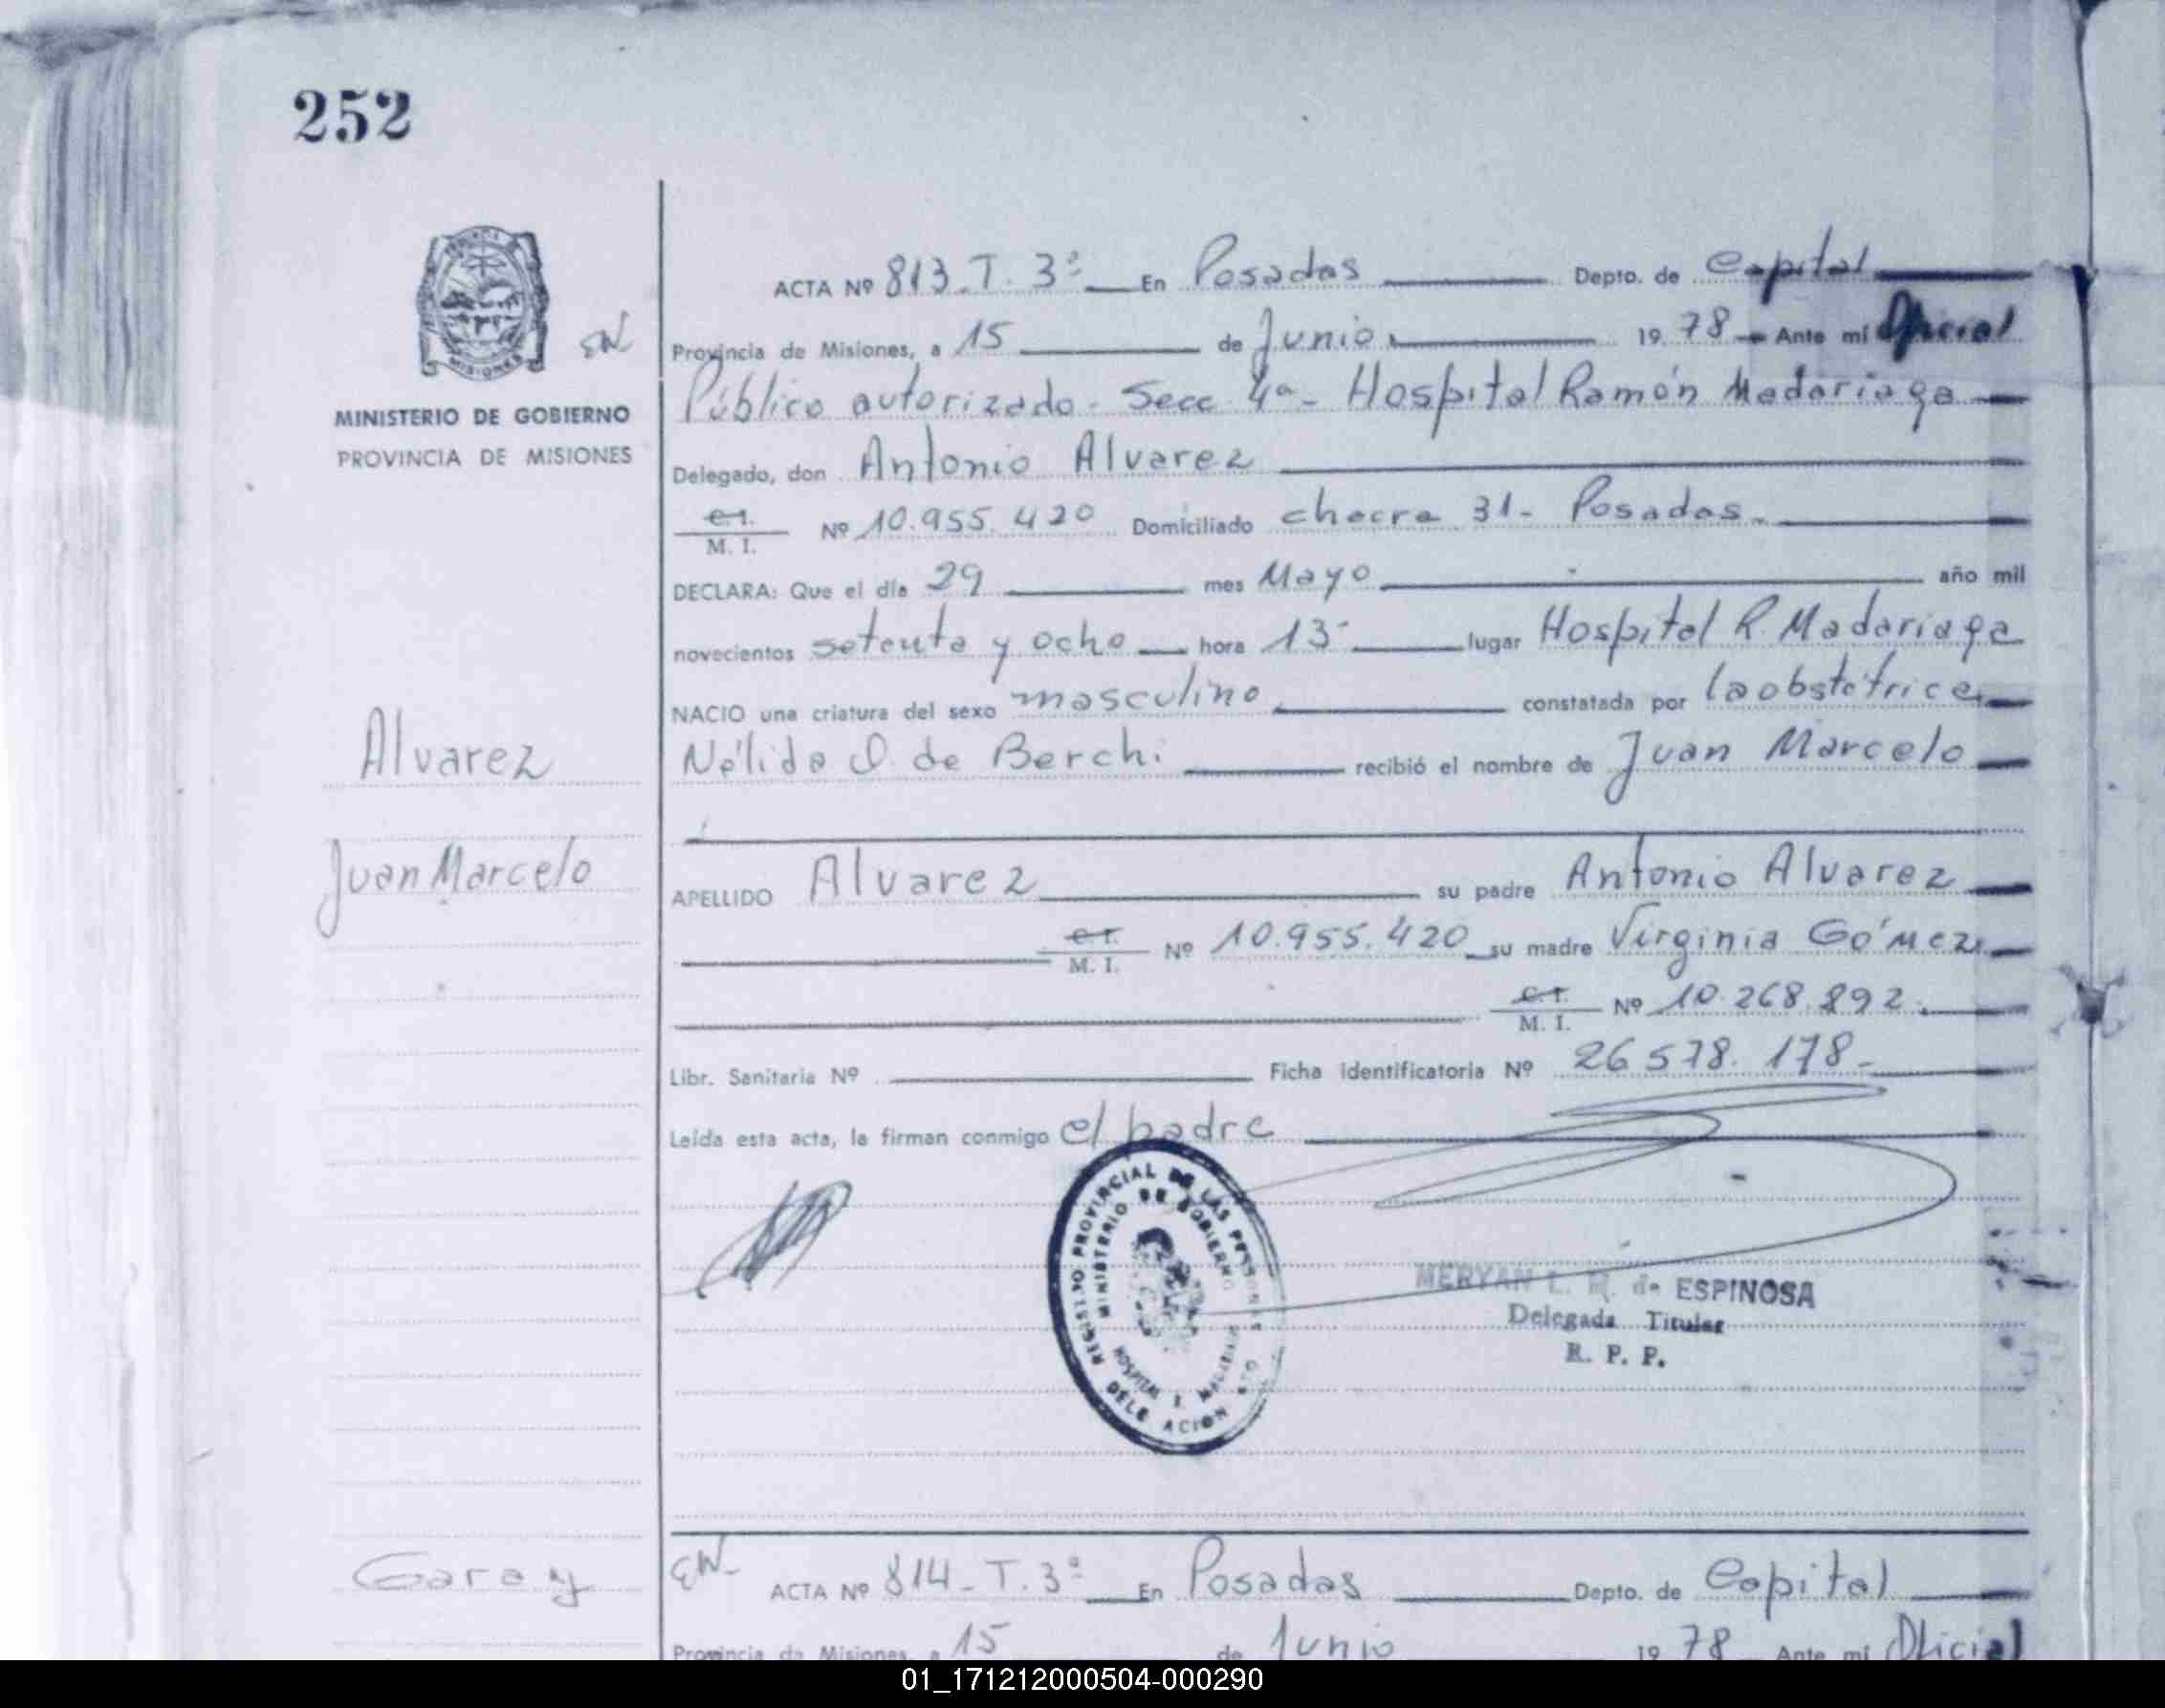 252
ACTA Nº 813.T. 3º En Posadas Depto. de Capital
EN Provincia de Misiones, a 15 de Junio 19 78 Ante mí Oficial
MINISTERIO DE GOBIERNO
PROVINCIA DE MISIONES
Público autorizado - Secc 4ª - Hospital Ramón Madariaga
Delegado, don Antonio Alvarez
C.I. M. I. Nº 10.955.420 Domiciliado chacra 31 - Posadas.
DECLARA: Que el día 29 mes Mayo año mil
novecientos setenta y ocho hora 13 lugar Hospital R. Madariaga
NACIO una criatura del sexo masculino constatada por la obstetrice
Alvarez
Nélida O. de Berchi recibió el nombre de Juan Marcelo
Juan Marcelo
APELLIDO Alvarez su padre Antonio Alvarez
C.I. M. I. Nº 10.955.420 su madre Virginia Gómez
C.I. M. I. Nº 10.268.892.
Libr. Sanitaria Nº Ficha identificatoria Nº 26 578. 178-
Leída esta acta, la firman conmigo el padre
REGISTRO PROVINCIAL DE LAS PERSONAS
MINISTERIO DE GOBIERNO
HOSPITAL R. MADARIAGA
DELEGACION
MERYAN L. R. de ESPINOSA
Delegada Titular
R. P. P.
Garay
EN- ACTA Nº 814 - T. 3º En Posadas Depto. de Capital
Provincia de Misiones, a 15 de Junio 19 78 Ante mí Oficial
01_171212000504-000290